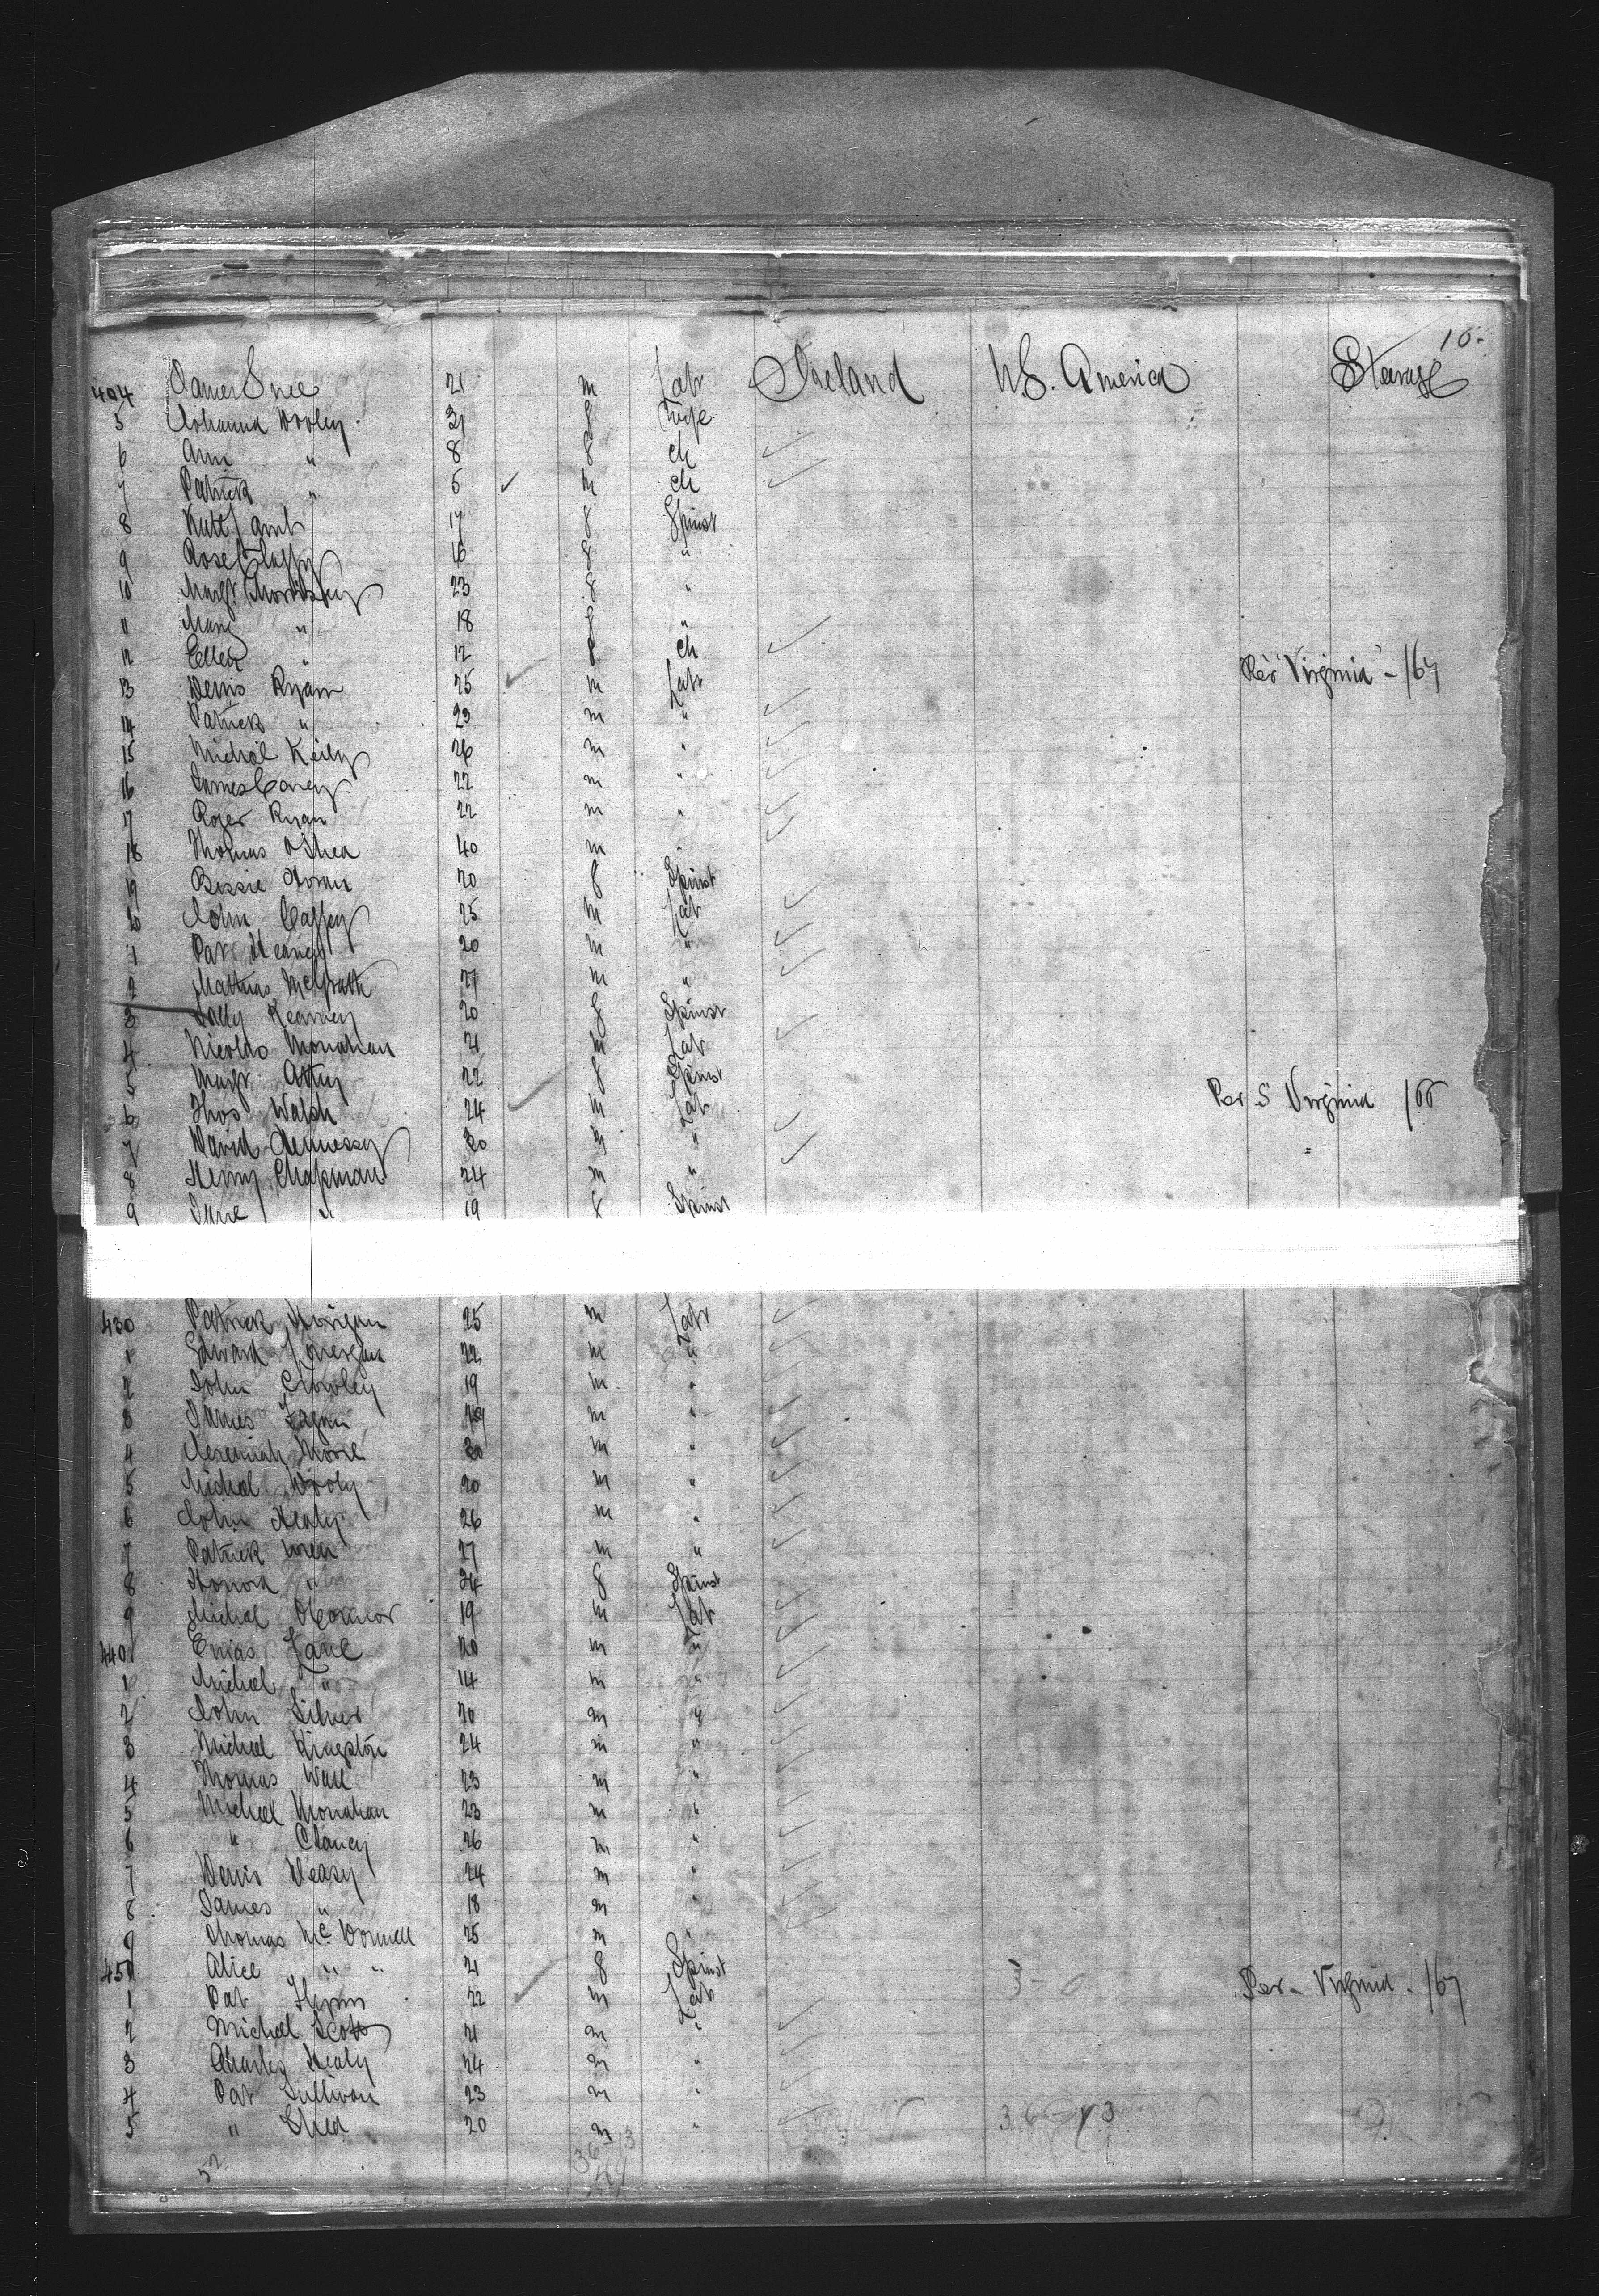 10.
404 James Snee 21 m Lab Ireland U.S. America Steerage
5 Johanna Dooley 31 f Wife
6 Ann " 8 f ch
7 Patrick " 6 ✓ m ch
8 Kate Lamb 17 f Spinst
9 Rose 16 f "
10 Margt Morrissey 23 f "
11 Mary " 18 f "
12 Ellen " 12 f ch
13 Denis Ryan 25 ✓ m Lab Per "Virginia" - /67
14 Patrick " 23 m "
15 Michal Keily 26 m "
16 James Carey 22 m "
17 Roger Ryan 22 m "
18 Thomas O'Shea 40 m "
19 Bessie Horan 20 f Spinst
20 John Caffey 25 m Lab
1 Pat Heaney 20 m "
2 Mathias McGrath 27 m "
3 Sally Kearney 20 f Spinst
4 Nicolas Monahan 21 m Lab
5 Margt 22 f Spinst
6 Thos Walsh 24 ✓ m Lab Per S Virginia /66
7 David Hennessy 20 m " "
8 Henry Chapman 24 m "
9 Jane " 19 f Spinst
430 Patrick Horigan 25 m Lab
1 Edward Lonergan 22 m "
2 John Crowley 19 m "
3 James Fagan m "
4 Jeremiah Moore 20 m "
5 Michal Dooly 20 m "
6 John Healy 26 m "
7 Patrick Wren 27 m "
8 Honora " 24 f Spinst
9 Michal OConnor 19 m Lab
440 Lane 20 m "
1 Michal " 14 m "
2 John Silver 20 m "
3 Michael Kingston 24 m "
4 Thomas Wall 23 m "
5 Michael Monahan 23 m "
6 " Clancy 26 m "
7 Denis Deasy 24 m "
8 James " 18 m "
9 Thomas Mc Donnell 25 m "
450 Alice " " 21 f Spinst
1 Pat Flynn 22 ✓ m Lab Per - Virginia - /67
2 Michael Scott 21 m "
3 Charles Healy 24 m "
4 Pat Sullivan 23 m "
5 " Shea 20 m "
52